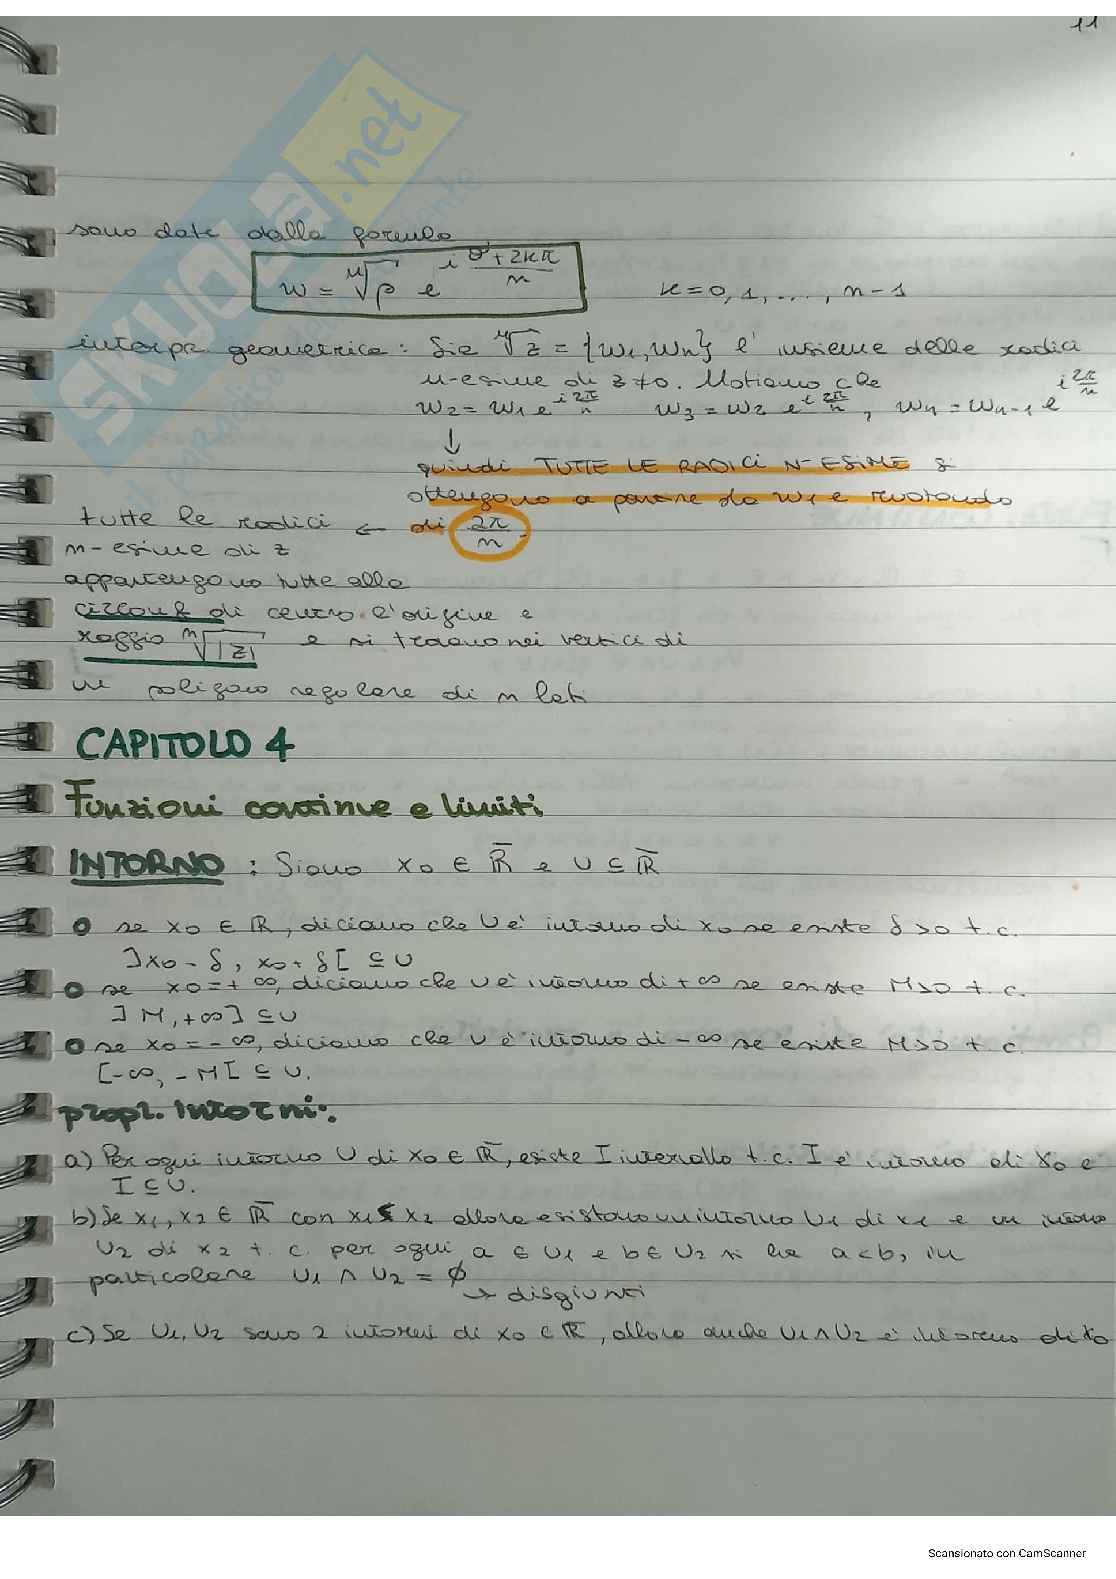 11
SKUOLA.net
sono date dalla formula
w = ⁿ√ρ e^(i (θ+2kπ)/n) k=0,1,...,n-1
interpr geometrica: Sia ⁿ√z = {w₁, wₙ} l'insieme delle radici
n-esime di z≠0. Notiamo che
w₂ = w₁ e^(i 2π/n) w₃ = w₂ e^(i 2π/n), wₙ = wₙ₋₁ e^(i 2π/n)
↓
quindi TUTTE LE RADICI N-ESIME si
ottengono a partire da w₁ e ruotando
tutte le radici ← di 2π/n.
n-esime di z
appartengono tutte alla
circonf di centro l'origine e
raggio ⁿ√|z| e si trovano nei vertici di
un poligono regolare di n lati
CAPITOLO 4
Funzioni continue e limiti
INTORNO : Siano x₀ ∈ R̅ e U ⊆ R̅
se x₀ ∈ R, diciamo che U è intorno di x₀ se esiste δ>0 t.c.
]x₀ - δ, x₀ + δ[ ⊆ U
se x₀ = + ∞, diciamo che U è intorno di +∞ se esiste M>0 t.c.
]M, +∞] ⊆ U
se x₀ = - ∞, diciamo che U è intorno di -∞ se esiste M>0 t.c.
[-∞, -M[ ⊆ U.
propr. Intorni:
a) Per ogni intorno U di x₀ ∈ R̅, esiste I intervallo t.c. I è intorno di x₀ e
I ⊆ U.
b) Se x₁, x₂ ∈ R̅ con x₁ < x₂ allora esistono un intorno U₁ di x₁ e un intorno
U₂ di x₂ t.c. per ogni a ∈ U₁ e b ∈ U₂ si ha a<b, in
particolare U₁ ∩ U₂ = ∅
→ disgiunti
c) Se U₁, U₂ sono 2 intorni di x₀ ∈ R̅, allora anche U₁ ∩ U₂ è intorno di x₀
Scansionato con CamScanner